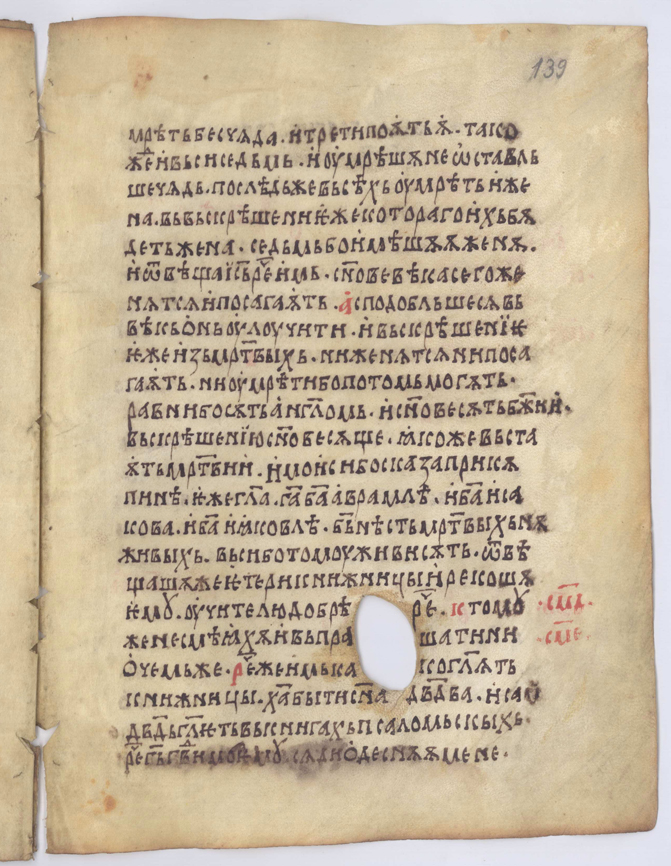 139
мрѣть бесчѧда · и трети поѧть ѭ · тако
жⷣе и вьси седьмь · и ѹмрѣшѧ не ѡставль
ше чѧдь · послѣдьже вьсѣхь ѹмрѣть и же
на · вьвьскрѣшении ѥже которагѡ ихь бѫ
деть жена · седьмь бо имѣшѫ ѭ женѫ ·
и ѿвѣщаї і҃с҃ь рⷱ҇е имь · сн҃ове вѣка сего же
нѧтсѧ и посагаѭть · а сподобльшесѧ вь
вѣкь онь ѹлѹчити · и вьскрѣшенїѥ
ѥже изь мрт҃выхь · ни женѧтсѧ ни поса
гаѭть · ни ѹмрѣти бо потомь могѫть ·
равни бо сѫть англ҃омь · и сн҃ове сѫть бж҃ии ·
вьскрѣшенїю сн҃ове сѫще · ꙗкоже вьста
ѭть мрт҃вии · и мѡиси бо сказа при кѫ
пинѣ · ѥже гл҃а · г҃а б҃а авраамлѣ · и б҃а иса
кова · и б҃а иꙗковлѣ · б҃ь нѣсть мрт҃выхь нѫ
живыхь · вьси бо томѹ живи сѫть · ѿвѣ
щашѧ же ѥтери книжници и рекошѧ
ѥмѹ · ѹчителю добрѣ рⷱ҇е · к томѹ · см҃д ·
же не смѣꙗхѫ и вьпра шати ни · см҃е ·
о чемьже · рⷱ҇е же имь ка ко гл҃ѭть
книжници · х҃а быти сн҃а дв҃два · и сам
дв҃дь гл҃ѥть вь книгахь псаломьскыхь ·
рⷱ҇е г҃ь г҃ви моѥмѹ · сѧди о деснѫѭ мене ·